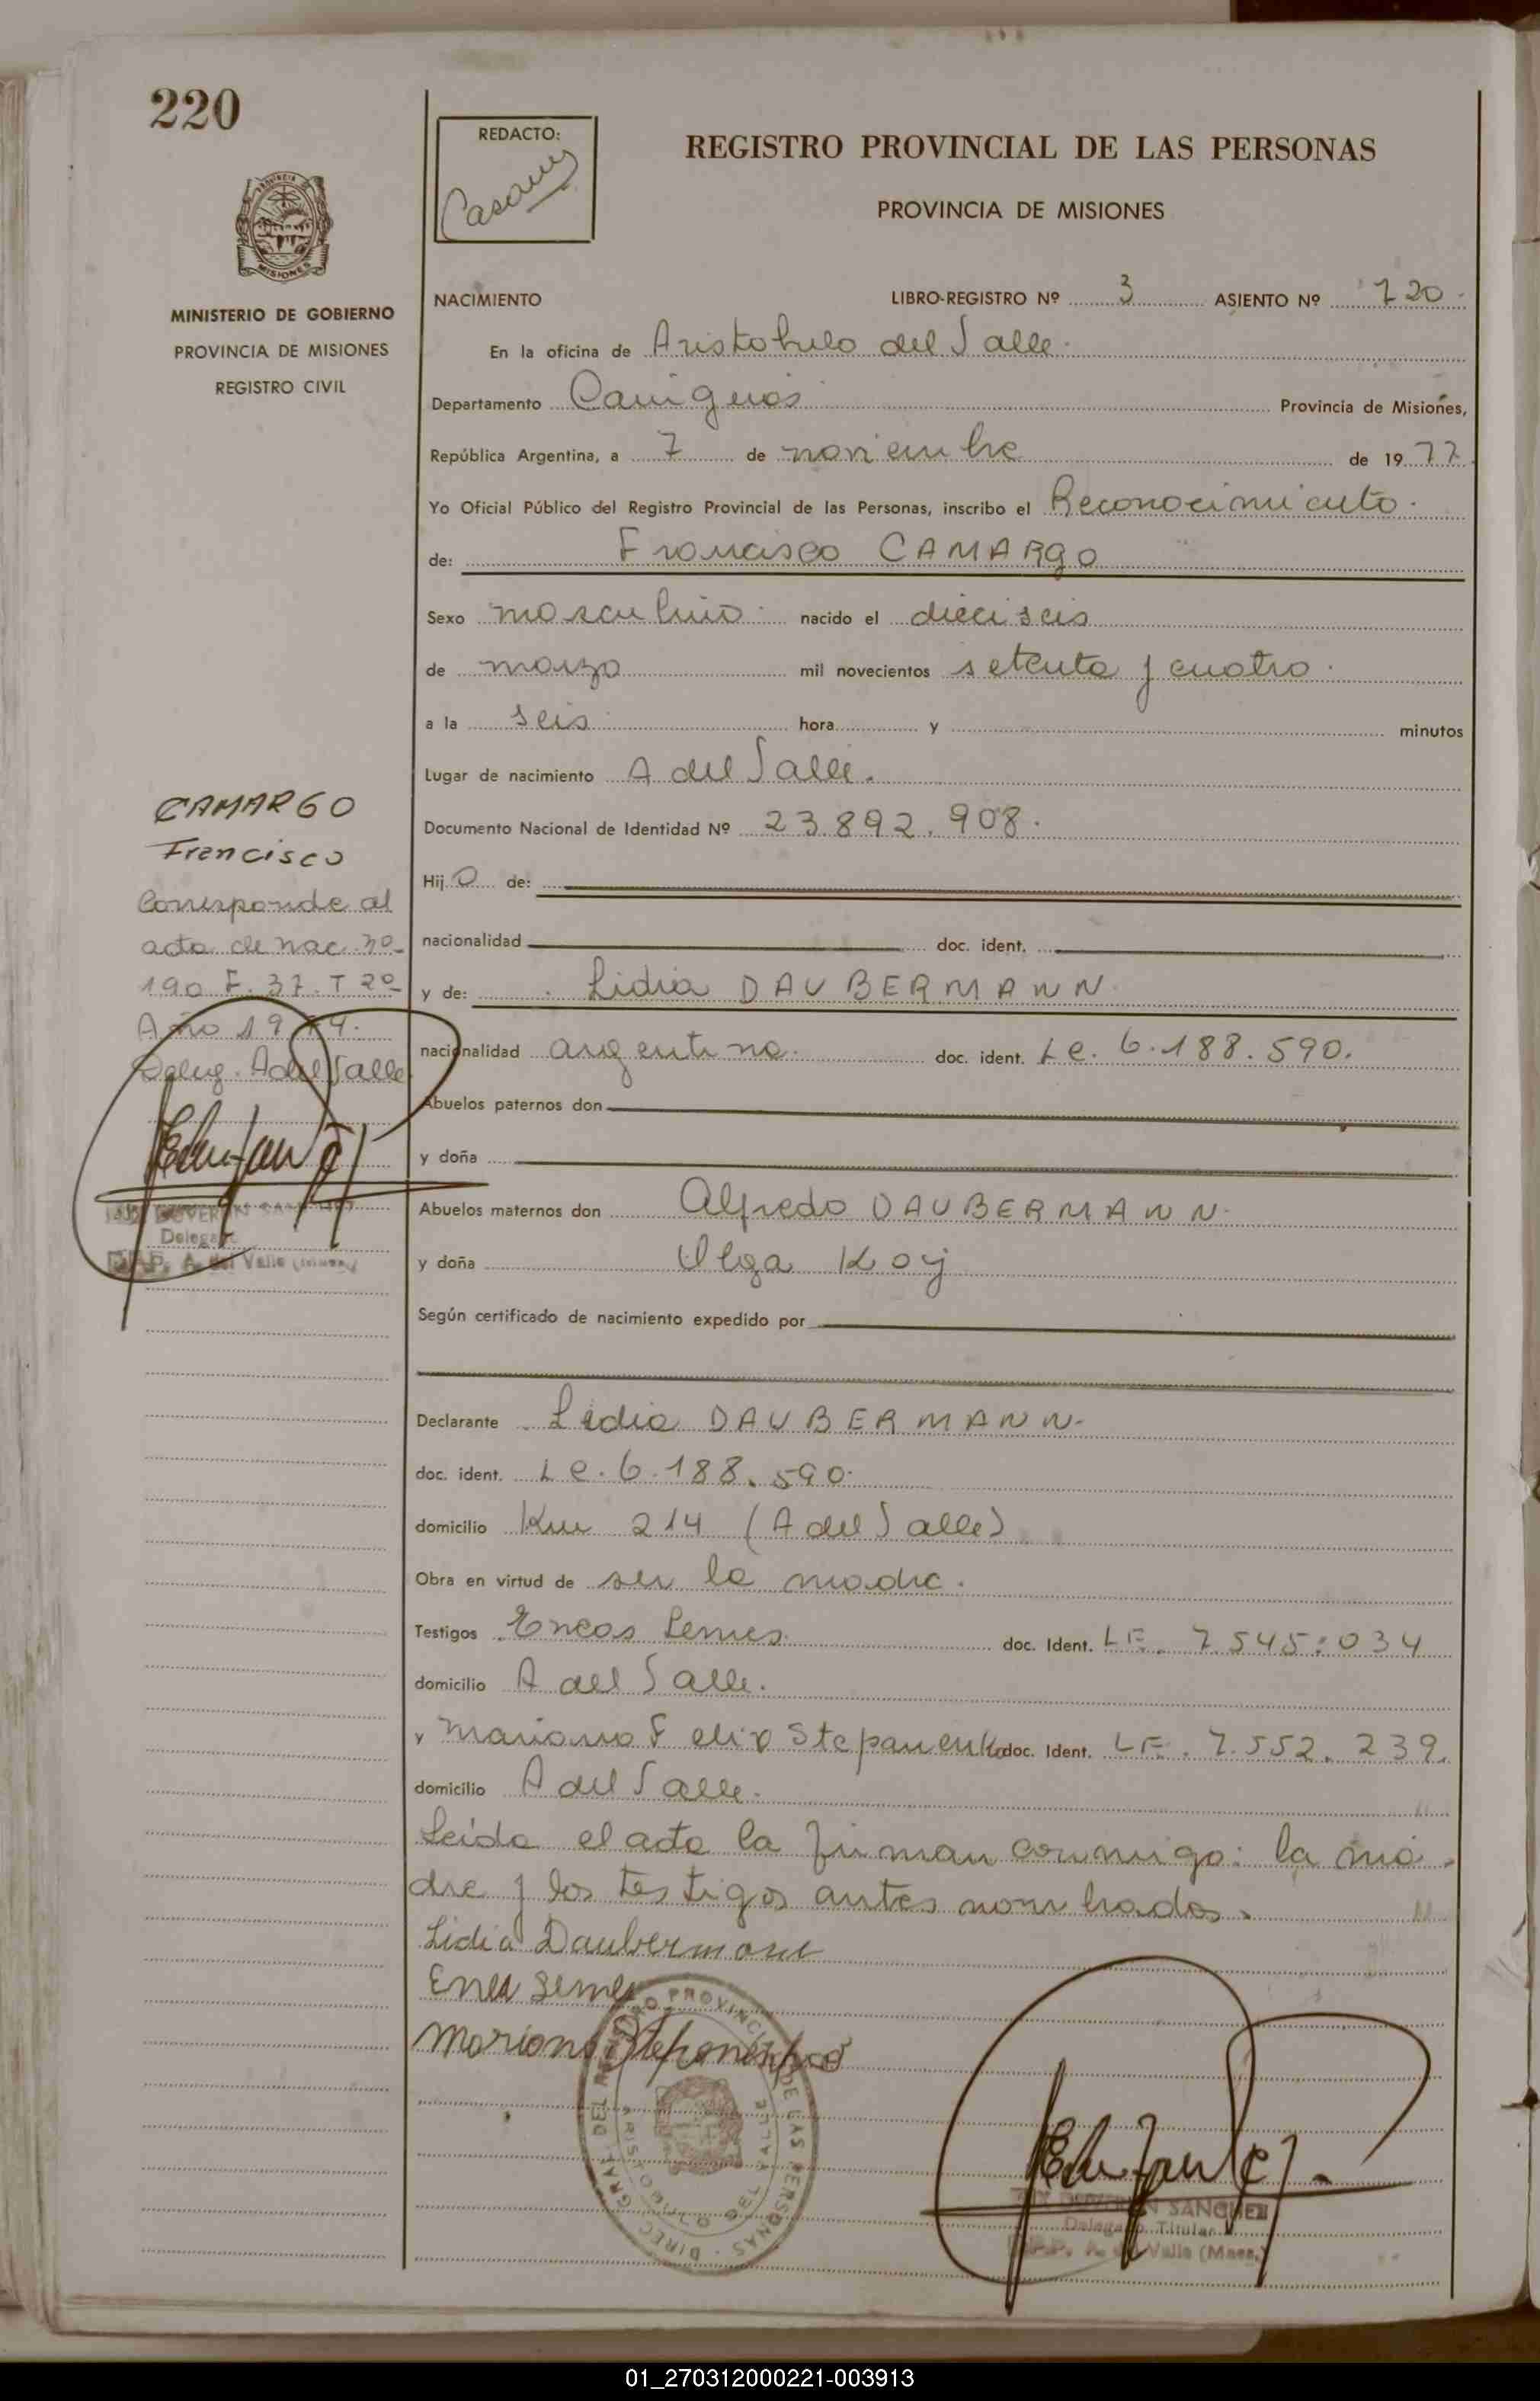 220
REDACTO:
Casany
REGISTRO PROVINCIAL DE LAS PERSONAS
PROVINCIA DE MISIONES
MISIONES
MINISTERIO DE GOBIERNO
PROVINCIA DE MISIONES
REGISTRO CIVIL
NACIMIENTO LIBRO-REGISTRO Nº 3 ASIENTO Nº 720.
En la oficina de Aristobulo del Valle.
Departamento Cainguás Provincia de Misiones,
República Argentina, a 7 de noviembre de 1977
Yo Oficial Público del Registro Provincial de las Personas, inscribo el Reconocimiento.
de: Francisco CAMARGO
Sexo masculino. nacido el dieciseis
de marzo mil novecientos setenta y cuatro.
a la seis hora y minutos
Lugar de nacimiento A del Valle.
Documento Nacional de Identidad Nº 23.892.908.
Hijo de:
nacionalidad doc. ident.
y de: Lidia DAUBERMANN
nacionalidad argentina. doc. ident. Lc. 6.188.590.
Abuelos paternos don
y doña
Abuelos maternos don Alfredo DAUBERMANN.
y doña Olga Koy
Según certificado de nacimiento expedido por
Declarante Lidia DAUBERMANN-
doc. ident. Lc. 6.188.590.
domicilio Km 214 (A del Valle)
Obra en virtud de ser la madre.
Testigos Eneas Lemes doc. Ident. LE. 7.545.034
domicilio A del Valle.
y Mariano Felix Stepanenko doc. Ident. LE. 7.552.239.
domicilio A del Valle.
Leida el acta la firman conmigo: la ma-
dre y los testigos antes nombrados.
Lidia Daubermann
Enea Lemes
Mariano Stepanenko
CAMARGO
Francisco
Corresponde al
acta de nac. nº
190 F. 37. T 2º
Año 1974.
Deleg. A del Valle
DUVERON SANCHEZ
Delegado
A. del Valle
DIREC. GRAL. DEL REGISTRO PROVINCIAL DE LAS PERSONAS
ARISTOBULO DEL VALLE
DUVERON SANCHEZ
Delegado Titular
A. del Valle (Mnes.)
01_270312000221-003913